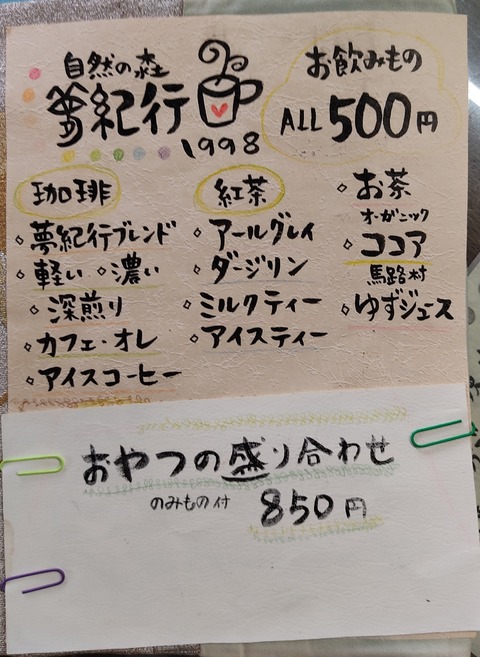 自然の森
夢紀行
1998
お飲みもの
ALL 500円
珈琲
◦夢紀行ブレンド
◦軽い ◦濃い
◦深煎り
◦カフェ・オレ
◦アイスコーヒー
紅茶
◦アールグレイ
◦ダージリン
◦ミルクティー
◦アイスティー
◦お茶
オーガニック
◦ココア
馬路村
◦ゆずジュース
おやつの盛り合わせ
のみもの付 850円